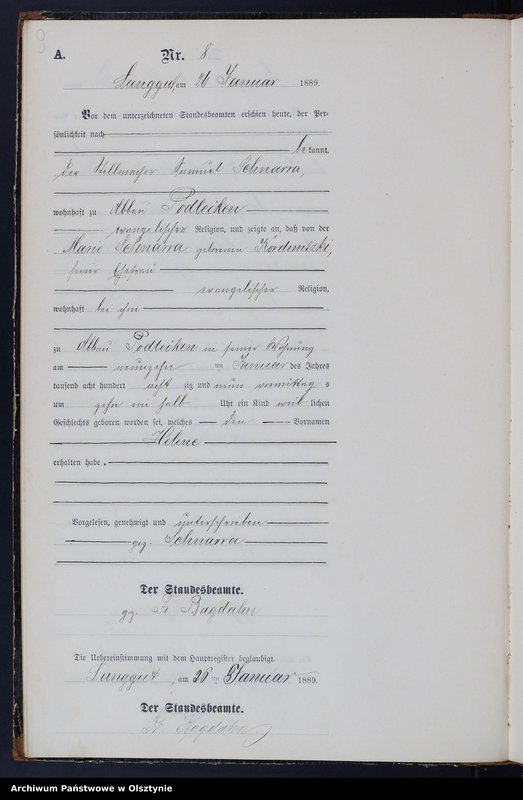 9
A.
Nr. 8
Langgut, am 26 Januar 1889.
Vor dem unterzeichneten Standesbeamten erschien heute, der Per-
sönlichkeit nach
bekannt,
der Stellmacher Samuel Schnarra,
wohnhaft zu Abbau Podleiken
evangelischer Religion, und zeigte an, daß von der
Marie Schnarra geborenen
seiner Ehefrau
evangelischer Religion,
wohnhaft bei ihm
zu Abbau Podleiken in seiner Wohnung
am neunzehn ten Januar des Jahres
tausend acht hundert acht zig und neun vormittag s
um zehn ein halb Uhr ein Kind weib lichen
Geschlechts geboren worden sei, welches den Vornamen
Helene
erhalten habe.
Vorgelesen, genehmigt und unterschrieben
gez. Schnarra
Der Standesbeamte.
gz. Bagdahn
Die Uebereinstimmung mit dem Hauptregister beglaubigt.
Langgut, am 26 ten Januar 1889.
Der Standesbeamte.
Bagdahn
Archiwum Państwowe w Olsztynie